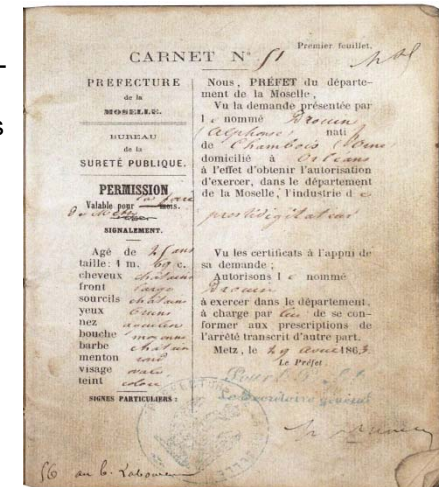 s
CARNET N° 51
Premier feuillet.
PREFECTURE
de la
MOSELLE.
BUREAU
de la
SURETÉ PUBLIQUE.
PERMISSION
Valable pour mois.
SIGNALEMENT.
Agé de ans
taille: 1 m. 69 c.
cheveux chatains
front large
sourcils chatains
yeux bruns
nez aquilin
bouche moyenne
barbe chatain
menton rond
visage ovale
teint coloré
SIGNES PARTICULIERS :
Nous, PRÉFET du départe-
ment de la Moselle,
Vu la demande présentée par
l e nommé Drouin
(Alphonse) nati
de Chambois (Orne
domicilié à Orléans
à l'effet d'obtenir l'autorisation
d'exercer, dans le département
de la Moselle, l'industrie d e
prestidigitateur
Vu les certificats à l'appui de
sa demande ;
Autorisons l e nommé
Drouin
à exercer dans le département,
à charge par lui de se con-
former aux prescriptions de
l'arrêté transcrit d'autre part.
Metz, le 29 avril 1863.
Le Préfet.
Le Secrétaire général
56 au b.